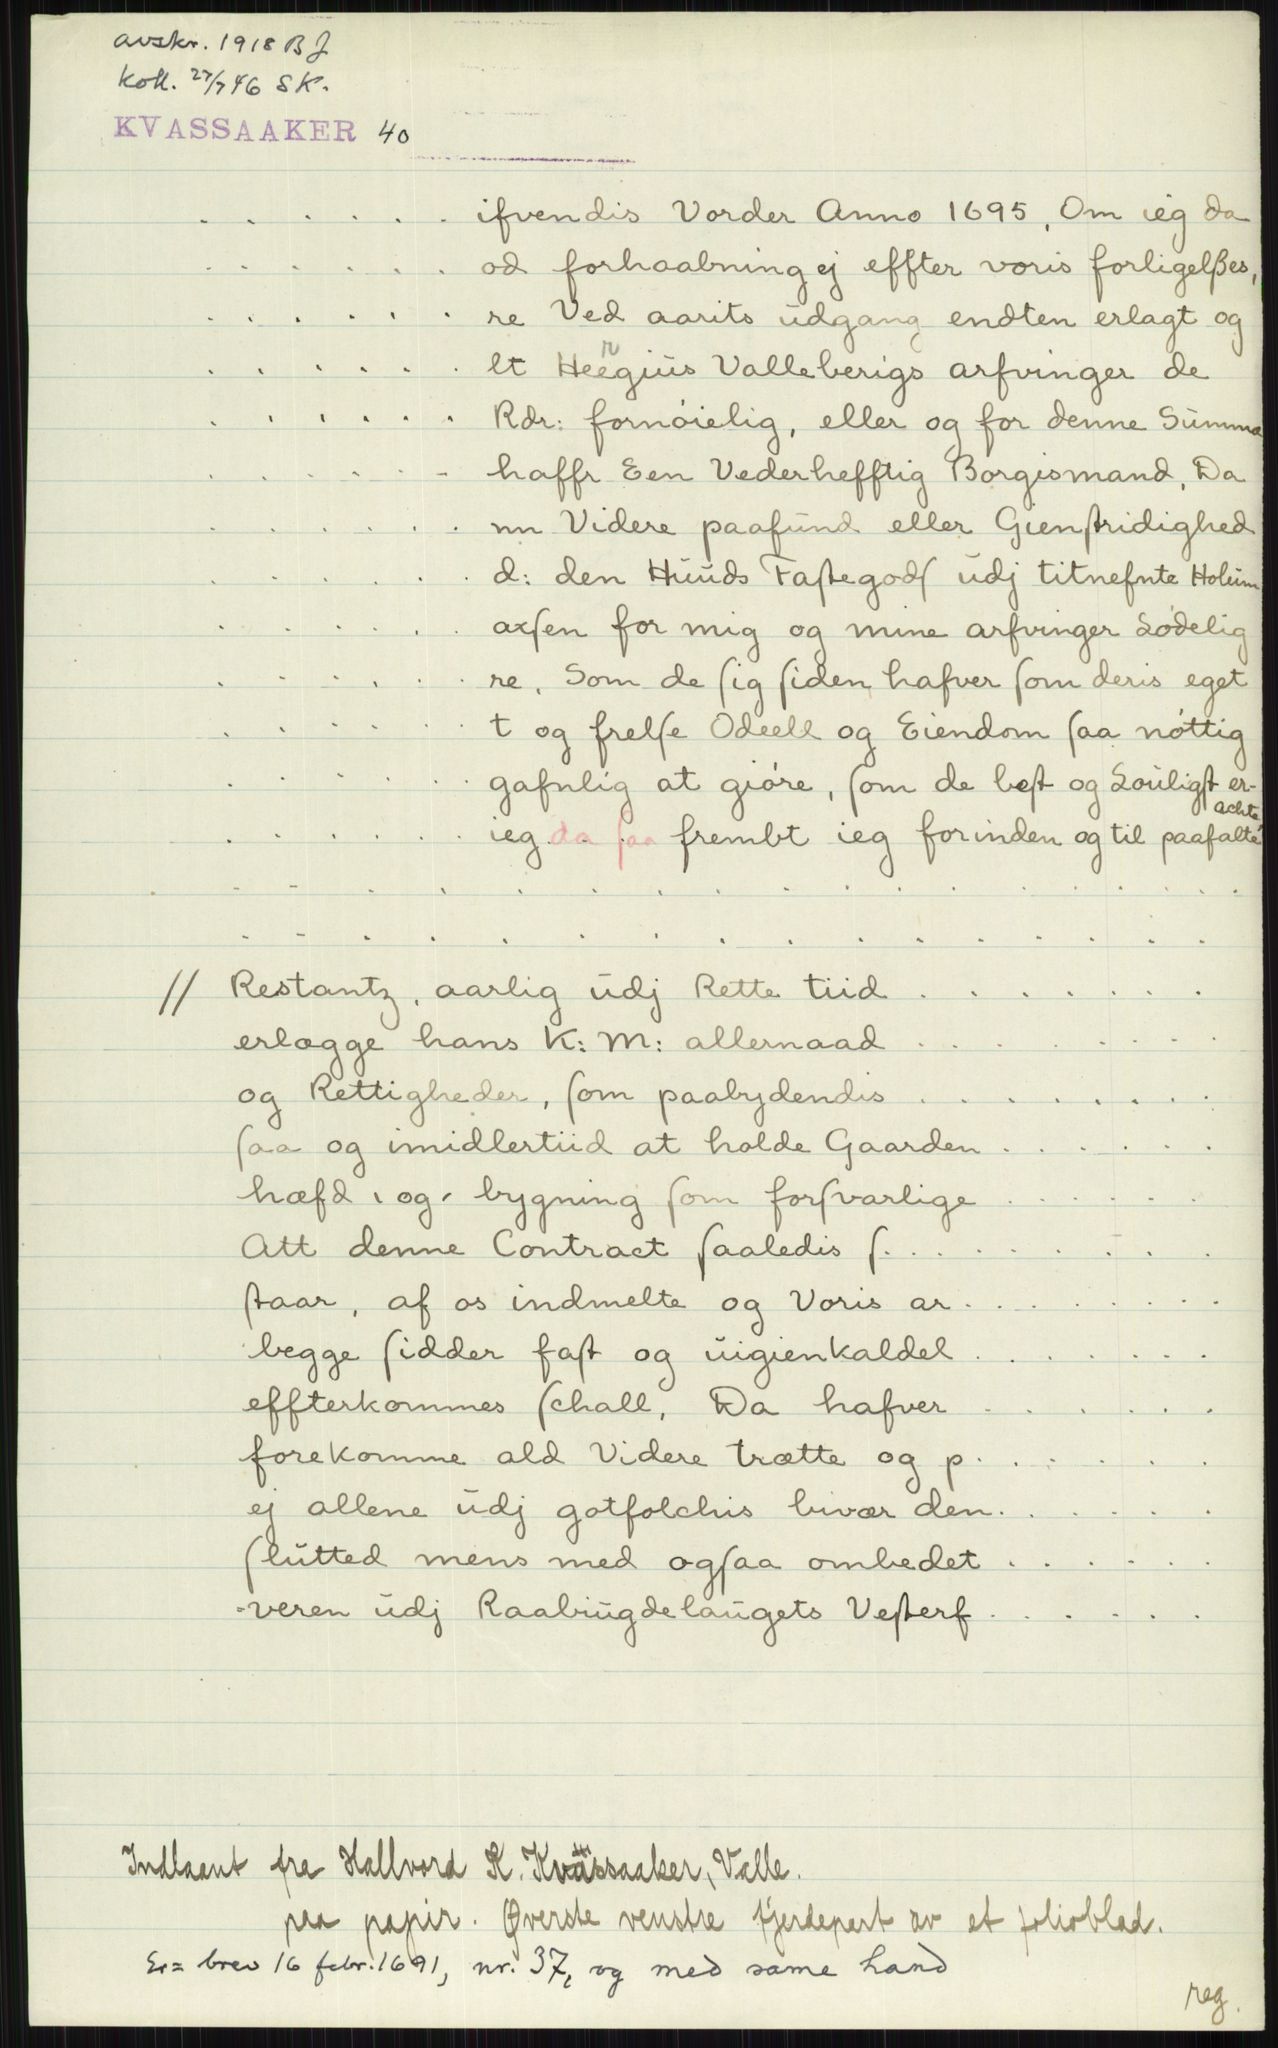 avskr. 1918 BJ
koll. 27/7 46 SK.
KVASSAAKER 40
. . . . . . ifvendis Vorder Anno 1695, Om ieg da
. . . . . . od forhaabning ej effter voris forligelßes,
. . . . . . re Ved aarits udgang endten erlagt og
. . . . . . lt Heergius Valleberigs arfvinger de
. . . . . . Rdr: fornóielig, eller og for denne Summa
. . . . . . haffr Een Vederhefftig Borgismand, Da
. . . . . . nn Videre paafund eller Gienſtridighed
. . . . . . d: den Huuds Faſtegodſ udj titnefnte Holum
. . . . . . axſen for mig og mine arfvinger Lódelig
. . . . . . re, Som de ſig ſiden hafver ſom deris eget
. . . . . . t og frelſe Odeell og Eiendom ſaa nóttig
. . . . . . gafnlig at gióre, ſom de beſt og Louligſt er-
achte
. . . . . . ieg da ſaa frembt ieg forinden og til paafalte
. . . . . . . . . . . . . . . .
. . . . . . . . . . . . . . .
// Restantz, aarlig udj Rette tiid . . . . . . .
erlægge hans K: M: allernaad . . . . . . . .
og Rettigheder, ſom paabydendis . . . . . . . .
ſaa og imidlertiid at holde Gaarden . . . . . .
hæfd, og, bygning ſom forſvarlige . . . . . .
Att denne Contract ſaaledis ſ. . . . . . . . .
ſtaar, af os indmelte og Voris ar . . . . . . . .
begge ſidder faſt og uigienkaldel . . . . . . .
effterkommes ſchall, Da hafver . . . . . .
forekomme ald Videre trætte og p. . . . . .
ej allene udj gotfolchis bivær den. . . . . . .
ſlutted mens med ogſaa ombedet . . . . . .
-veren udj Raabiugdelaugets Veſterf . . . . . .
Indlaant fra Hallvord K. Kvassaaker, Valle.
paa papir. Øverste venstre fjerdepart av et folioblad.
Er = brev 16 febr. 1691, nr. 37, og med same hand
reg.